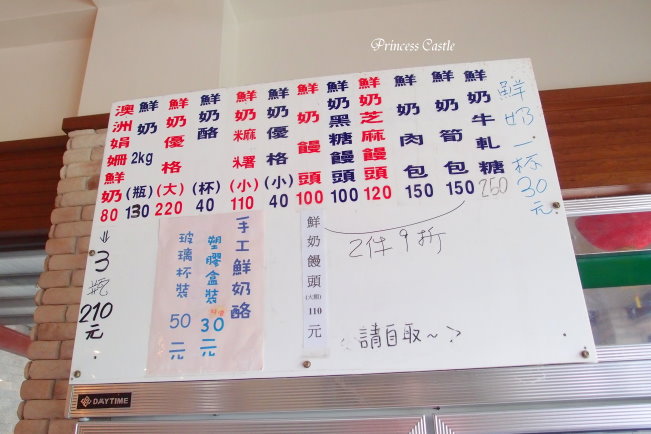 Princess Castle
澳洲娟姍鮮奶 80
鮮奶 2kg (瓶) 130
鮮奶優格 (大) 220
鮮奶酪 (杯) 40
鮮奶麻糬 (小) 110
鮮奶優格 (小) 40
鮮奶饅頭 100
鮮奶黑糖饅頭 100
鮮奶芝麻饅頭 120
鮮奶肉包 150
鮮奶筍包 150
鮮奶牛軋糖 250
鮮奶一杯30元
↓3瓶210元
玻璃杯裝 50元
塑膠盒裝 30元
手工鮮奶酪
鮮奶饅頭(大顆)110元
2件9折
請自取~
DAYTIME